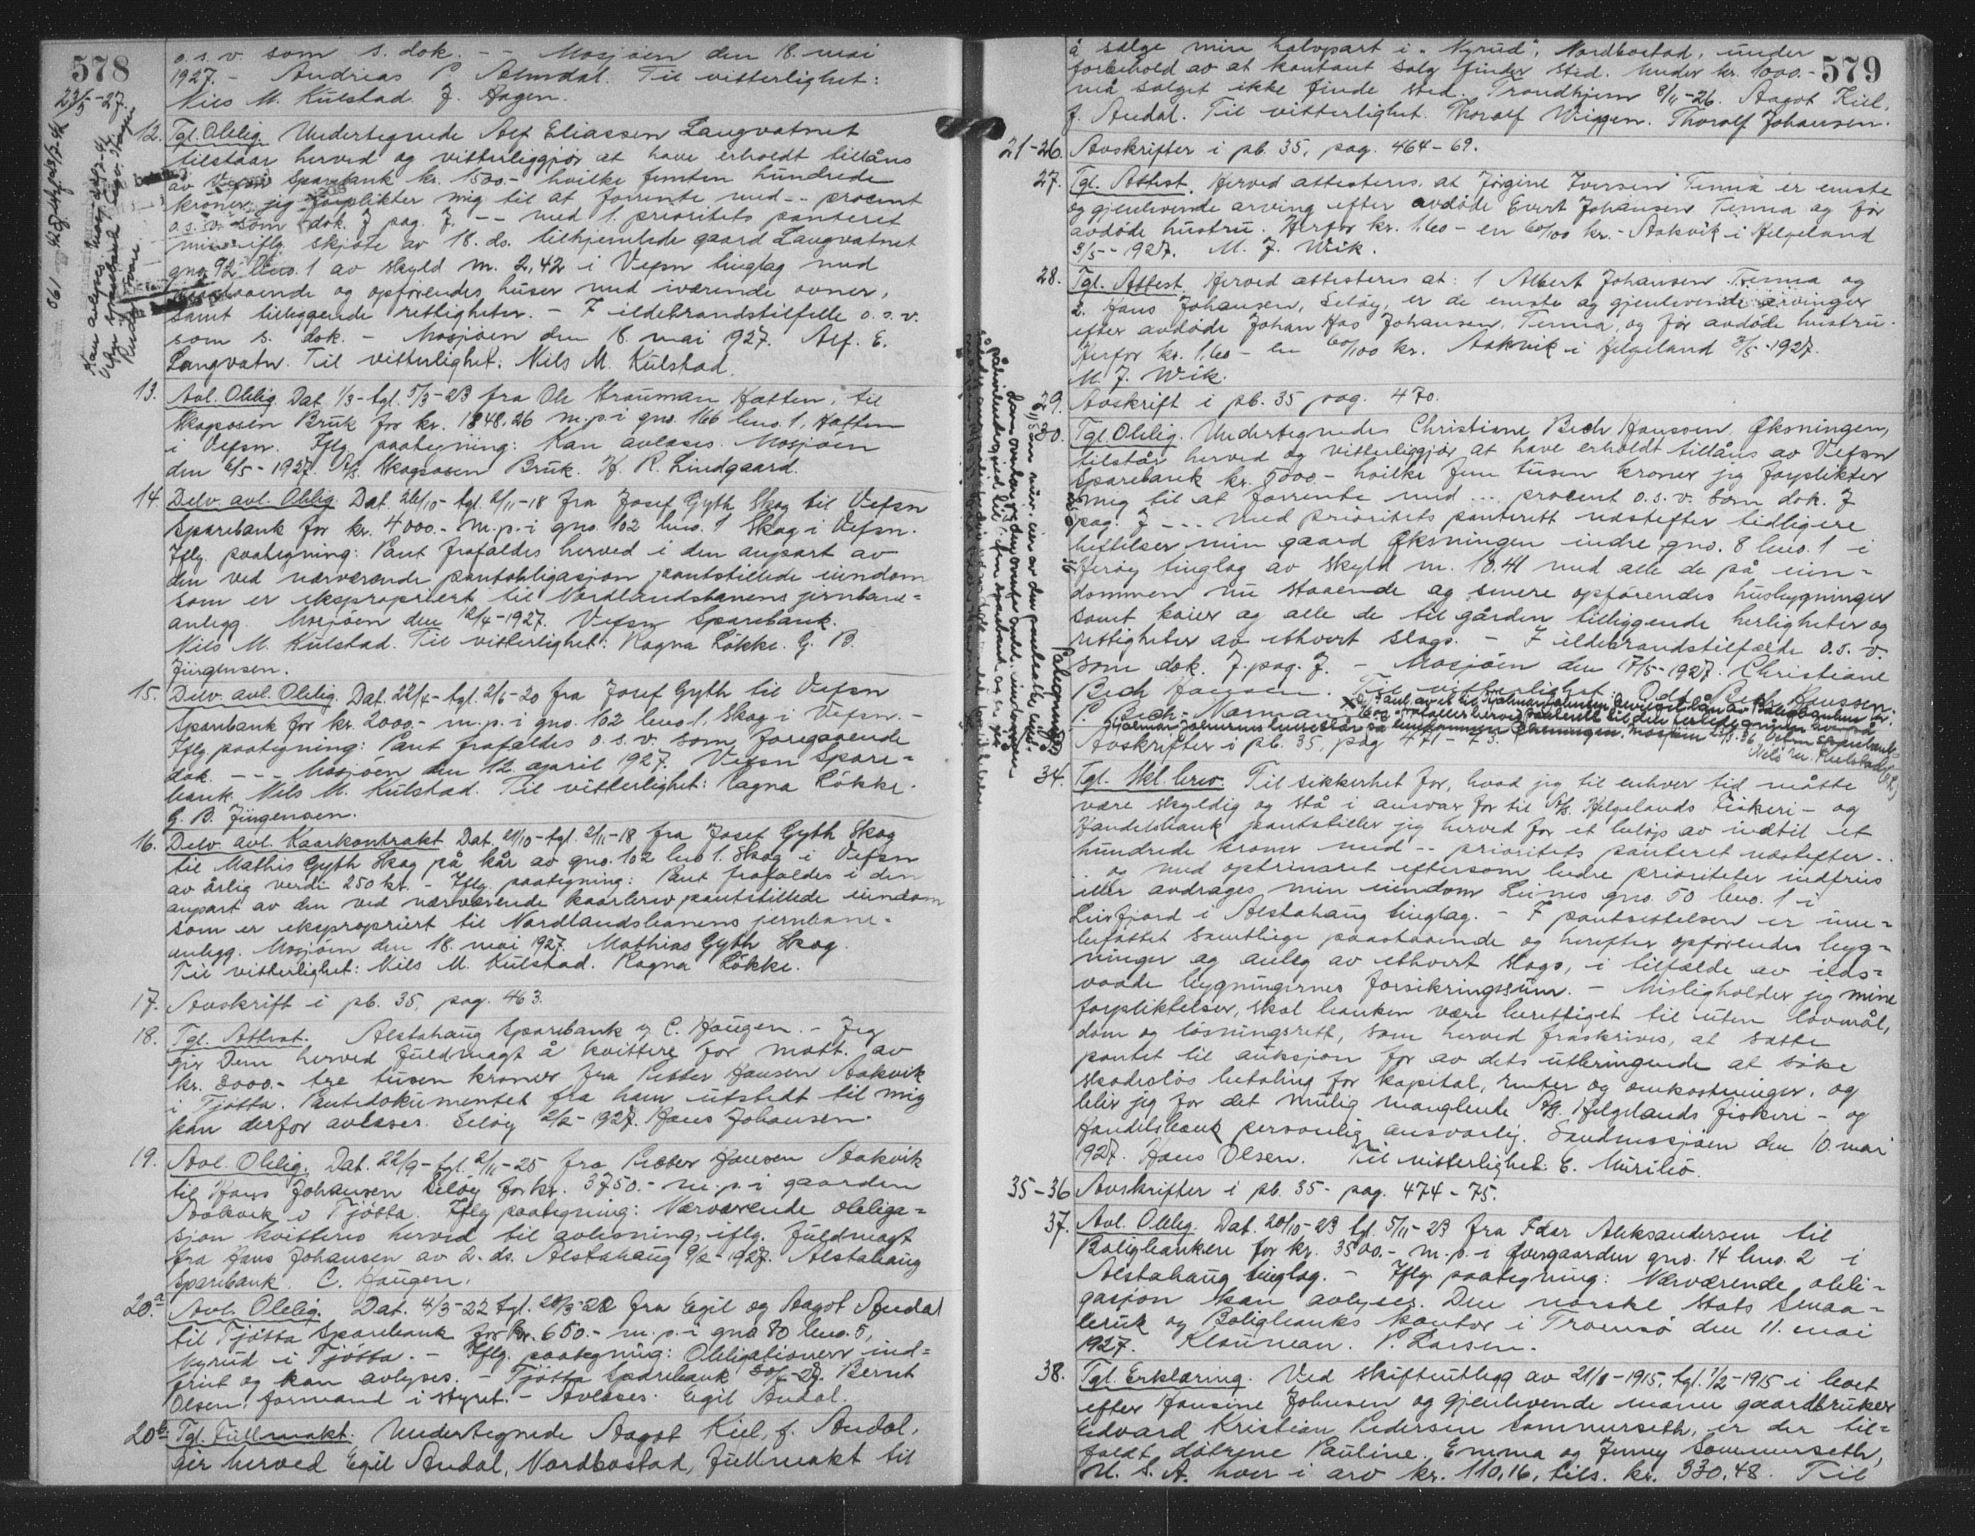 578
o.s.v. som s. dok. -- Mosjøen den 18. mai
1927. - Andreas P. Almdal. Til vitterlighet:
Nils M. Kulstad. J. Aagen.
23/5-27.
12. Tgl. Oblig. Undertegnede Alf Eliassen Langvatnet
tilstaar herved og vitterliggjør at have erholdt tillåns
av Vefsn Sparebank kr. 1500.- hvilke femten hundrede
kroner jeg forplikter mig til at forrente med -- procent
o.s.v. som dok. 7 pag. 7. -- med 1. prioritets panteret
min iflg. skjøte av 18. ds. tilhjemlede gaard Langvatnet
gno. 92 bno. 1 av skyld m. 2,42 i Vefsn tinglag med
paastaaende og opførendes huser med iværende ovner,
samt tilliggende rettigheter. - I ildebrandstilfelle o.s.v.
som s. dok. - Mosjøen den 18. mai 1927. Alf. E.
Langvatn. Til vitterlighet: Nils M. Kulstad.
13. Avl. Oblig. Dat. 1/3- tgl. 5/3-23 fra Ole Strauman Hatten, til
Skogsosen Bruk for kr. 1848,26 m.p.i gno. 166 bno. 1, Hatten
i Vefsn. Iflg. paategning: Kan avlæses. Mosjøen
den 6/5-1927. A/S Skogsosen Bruk. H. R. Lindgaard.
14. Delv. avl. Oblig. Dat. 26/10- tgl. 2/11-18 fra Josef Gyth Skog til Vefsn
Sparebank for kr. 4000.- m.p.i gno. 102 bno. 1 Skog i Vefsn.
Iflg. paategning: Pant frafaldes herved i den anpart av
den ved nærværende pantobligasjon pantstillede eiendom
som er ekspropriert til Nordlandsbanens jernbane=
anlegg. Mosjøen den 12/4-1927. Vefsn Sparebank.
Nils M. Kulstad. Til vitterlighet: Ragna Løkke. G. B.
Jürgensen.
15. Delv. avl. Oblig. Dat. 22/4- tgl. 2/6-20 fra Josef Gyth til Vefsn
Sparebank for kr. 2000.- m.p.i gno. 102 bno. 1, Skog i Vefsn. -
Iflg. paategning: Pant frafaldes o.s.v. som foregaaende
dok. --- Mosjøen den 12. april 1927. Vefsn Spare=
bank. Nils M. Kulstad. Til vitterlighet: Ragna Løkke.
G. B. Jürgensen.
16. Delv. avl. Kaarkontrakt Dat. 21/10- tgl. 2/11-18 fra Josef Gyth Skog
til Mathis Gyth Skog på kår av gno. 102 bno 1. Skog i Vefsn
av årlig verdi 250 kr. - Iflg. paategning: Pant frafaldes i den
anpart av den ved nærværende kaarbrev pantstillede eiendom
som er ekspropriert til Nordlandsbanens jernbane-
anlegg. Mosjøen den 18. mai 1927. Mathias Gyth Skog.
Til vitterlighet: Nils M. Kulstad. Ragna Løkke.
17. Avskrift i pb. 35, pag. 463.
18. Tgl. Attest. Alstahaug Sparebank v/ C. Haugen. - Jeg
gir Dem herved fuldmagt å kvittere for mott. av
kr. 3000.- tre tusen kroner fra Petter Hansen Aakvik
i Tjøtta. Pantedokumentet fra ham utstedt til mig
kan derfor avlæses. Seløy 2/2-1927. Hans Johansen.
19. Avl. Oblig. Dat. 22/9- tgl. 2/11-25 fra Petter Hansen Aakvik
til Hans Johansen Seløy for kr. 3750.- m.p.i gaarden
Aakvik i Tjøtta. Iflg paategning: Nærværende obliga=
sjon kvitteres herved til avlesning, iflg. fuldmagt
fra Hans Johansen av 2. ds. Alstahaug 9/2-1927. Alstahaug
Sparebank. C. Haugen.
20.a Avl. Oblig. Dat. 4/3-22 tgl. 20/3-22 fra Egil og Aagot Andal
til Tjøtta Sparebank for kr. 650.- m.p.i gno 80 bno. 5,
Nyrud i Tjøtta. - Iflg. paategning: Obligationen ind=
friet og kan avlyses. - Tjøtta Sparebank 30/4-27. Bernt
Olsen, formand i styret. - Avlæses. Egil Andal.
20b. Tgl. Fullmakt. Undertegnede Aagot Kiel, f. Andal,
gir herved Egil Andal, Nordbostad, fullmakt til
579
å selge min halvpart i "Nyrud", Nordbostad, under
forbehold av at kontant salg finder sted. Under kr. 1000.-
må salget ikke finde sted. Trondhjem 8/11-26. Aagot Kiel,
f. Andal. Til vitterlighet. Thoralf Wiggen. Thoralf Johansen.
21-26. Avskrifter i pb. 35, pag. 464-69.
27. Tgl. Attest. Herved attesteres at Jørgine Iversen Tenna er eneste
og gjenlevende arving efter avdøde Evert Johansen Tenna og før
avdøde hustru. Herfor kr. 1.60 - en 60/100 kr. - Aakvik i Helgeland
3/5-1927. M. J. Wik.
28. Tgl. Attest. Herved attesteres at: 1 Albert Johansen Tenna og
2. Hans Johansen, Seløy, er de eneste og gjenlevende arvinger
efter avdøde Johan Hos Johansen, Tenna, og før avdøde hustru.
Herfor kr. 1.60 - en 60/100 kr. Aakvik i Helgeland 3/5-1927.
M. J. Wik.
29. Avskrift i pb. 35 pag. 470.
30. Tgl. Oblig. Undertegnede Christiane Bech Hanssen, Øksningen,
tilstår herved og vitterliggjør at have erholdt tillåns av Vefsn
Sparebank kr. 5000.- hvilke fem tusen kroner jeg forplikter
mig til at forrente med ... procent o.s.v. som dok. 7
pag. 7 --- med prioritets panterett næstefter tidligere
heftelser min gaard Øksningen indre gno. 8 bno. 1 i
Herøy tinglag av skyld m. 10.41 med alle de på eien=
dommen nu staaende og senere opførendes husbygninger
samt kaier og alle de til gården tilliggende herligheter og
rettigheter av ethvert slags. - I ildebrandstilfælde o.s.v.
som dok. 7. pag. 7. - Mosjøen den 7/5-1927. Christiane
Bech Hansen. Til vitterlighet: Odd Bech Hanssen.
P. Bech-Norman
Avskrifter i pb. 35, pag 471-73.
Nils M. Kulstad
34. Tgl. Skl. brev. Til sikkerhet for, hvad jeg til enhver tid måtte
være skyldig og stå i ansvar for til A/S. Helgelands Fiskeri- og
Handelsbank pantstiller jeg herved for et beløp av indtil et
hundrede kroner med -- prioritets panteret næstefter ..
.. og med optrinsret eftersom bedre prioriteter indfries
eller avdrages, min eiendom Leines gno. 50 bno. 1 i
Leirfjord i Alstahaug tinglag. - I pantsettelsen er inne-
befattet samtlige paastaaende og herefter opførendes byg=
ninger og anlæg av ethvert slags, i tilfælde av ilds=
vaade bygningernes forsikringssum. - Misligholder jeg mine
forpliktelser, skal banken være berettiget til uten lovmål,
dom og løsningsrett, som herved fraskrives, at sætte
pantet til auksjon for av dets utbringende at søke
skadesløs betaling for kapital, renter og omkostninger, og
blir jeg for det mulig manglende A/S. Helgelands Fiskeri- og
Handelsbank personlig ansvarlig. Sandnessjøen den 10. mai
1927. Hans Olsen. Til vitterlighet: E. Meriliö.
35-36 Avskrifter i pb. 35- pag. 474-75.
37. Avl. Oblig. Dat. 20/10-23 tgl. 5/11-23 fra Peder Aleksandersen til
Boligbanken for kr. 3500.- m.p.i Øvergaarden gno. 14 bno. 2 i
Alstahaug tinglag. - Iflg. paategning: Nærværende obli-
gasjon kan avlyses. Den norske Stats Smaa-
bruk og Boligbanks kontor i Tromsø den 11. mai
1927. Klouman. P. Larsen.
38. Tgl. Erklæring. Ved skifteutlegg av 21/1-1915, tgl. 1/2-1915 i boet
efter Hansine Johnsen og gjenlevende mann gaardbruker
Edvard Kristian Pedersen Sommerseth, er der til-
faldt døtrene Pauline, Emma og Jenny Sommerseth,
U. S. A. hver i arv kr. 110,16, tils. kr. 330,48. Til